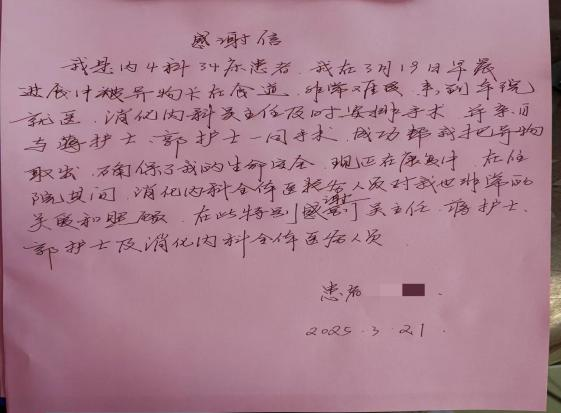 感谢信
我是内4科34床患者,我在3月19日早晨
进食时被异物卡在食道,非常难受,来到车锐
就医,消化内科吴主任及时安排手术,并亲自
与蒋护士、郭护士一同手术,成功帮我把异物
取出,确保了我的生命安全,现正在康复中,在住
院其间,消化内科全体医护人员对我也非常的
关爱和照顾,在此特别感谢吴主任,蒋护士、
郭护士及消化内科全体医护人员
患者
2025.3.21.